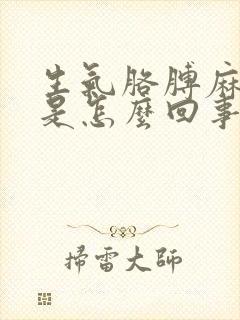 生氣胳膊麻
是怎麼回事
掃雷大師